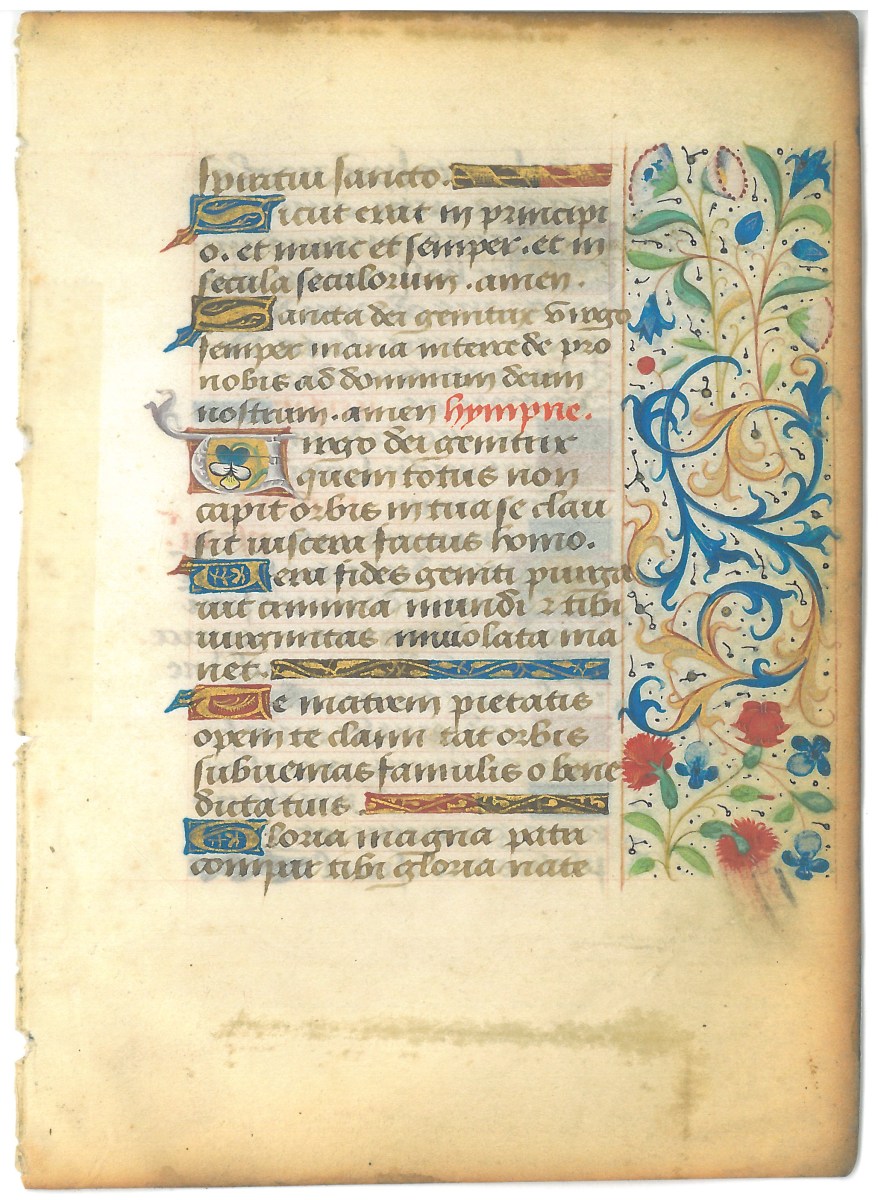 spiritui sancto.
Sicut erat in principi
o. et nunc et semper. et in
secula seculorum. amen.
Sancta dei genitrix virgo
semper maria intercede pro
nobis ad dominum deum
nostrum. amen hympne.
Virgo dei genitrix
quem totus non
capit orbis in tua se clau
sit viscera factus homo.
Vera fides geniti purga
vit crimina mundi ⁊ tibi
virginitas inviolata ma
net.
Te matrem pietatis
opem te clami tat orbis
subvenias famulis o bene
dicta tuis.
Gloria magna patri
compar tibi gloria nate